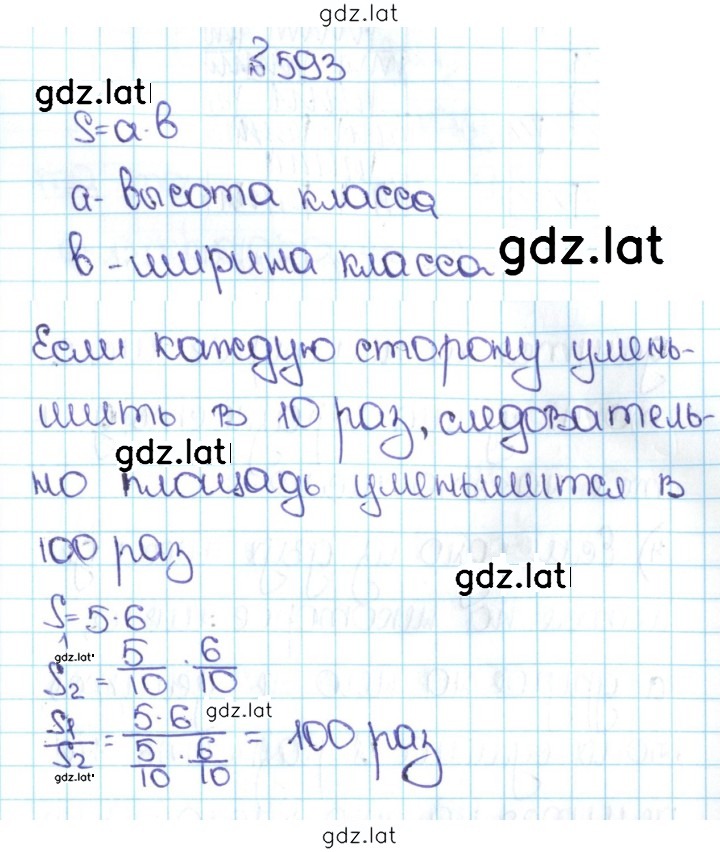 gdz.lat
№ 593
gdz.lat
S=a·b
a- высота класса
b-ширина класса
gdz.lat
Если каждую сторону умень-
шить в 10 раз, следователь-
gdz.lat
но площадь уменьшится в
100 раз
gdz.lat
S₁=5·6
gdz.lat
S₂ = 5/10 · 6/10
gdz.lat
S₁/S₂ = (5·6)/(5/10 · 6/10) = 100 раз
gdz.lat
gdz.lat